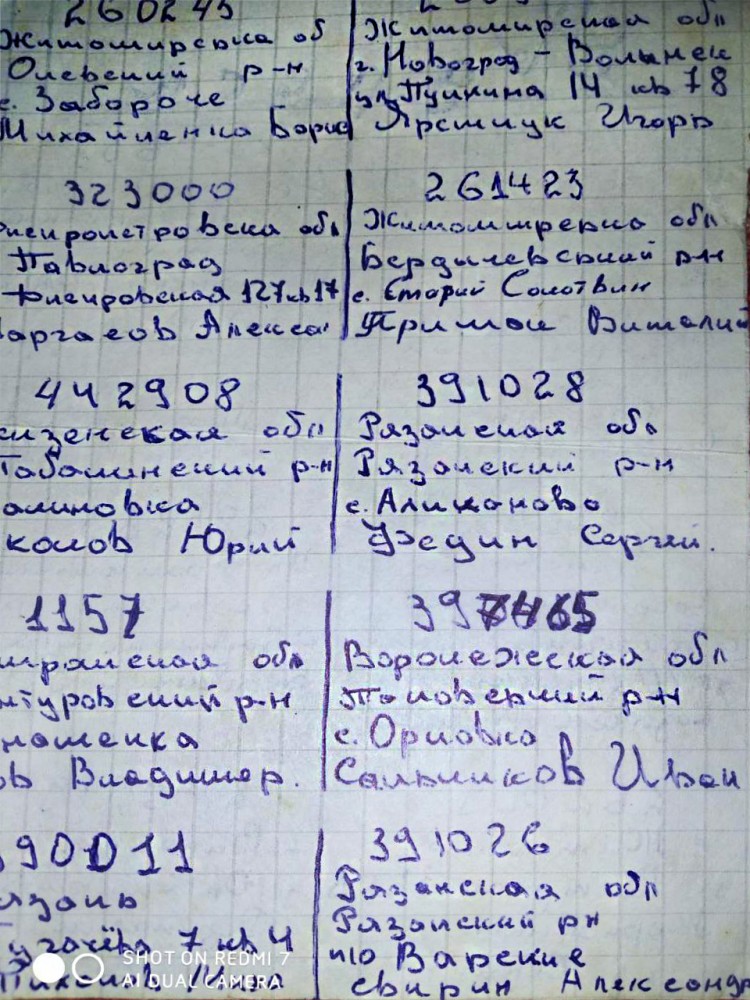 260245
Житомирська об
Олевский р-н
с. Забороче
Михайленко Борис
Житомирская обл
г. Новоград-Волынск
ул Пушкина 14 кв 78
Яремчук Игорь
323000
непропетровская обл
Павлоград
Днепровская 127 кв 17
Алексан
261423
Житомирська обл
Бердичевський р-н
с. Старий Солотвин
Примак Виталий
442908
ензенская обл
Тамалинский р-н
алиновка
колов Юрий
391028
Рязанская обл
Рязанский р-н
с. Аликаново
Федин Сергей.
1157
обл
нтуровский р-н
ношенка
ов Владимир.
397465
Воронежская обл
Таловский р-н
с. Орловка
Сальников Иван
390011
язань
7 кв 4
391026
Рязанская обл
Рязанский рн
п/о Варские
Свирин Александр
SHOT ON REDMI 7
AI DUAL CAMERA